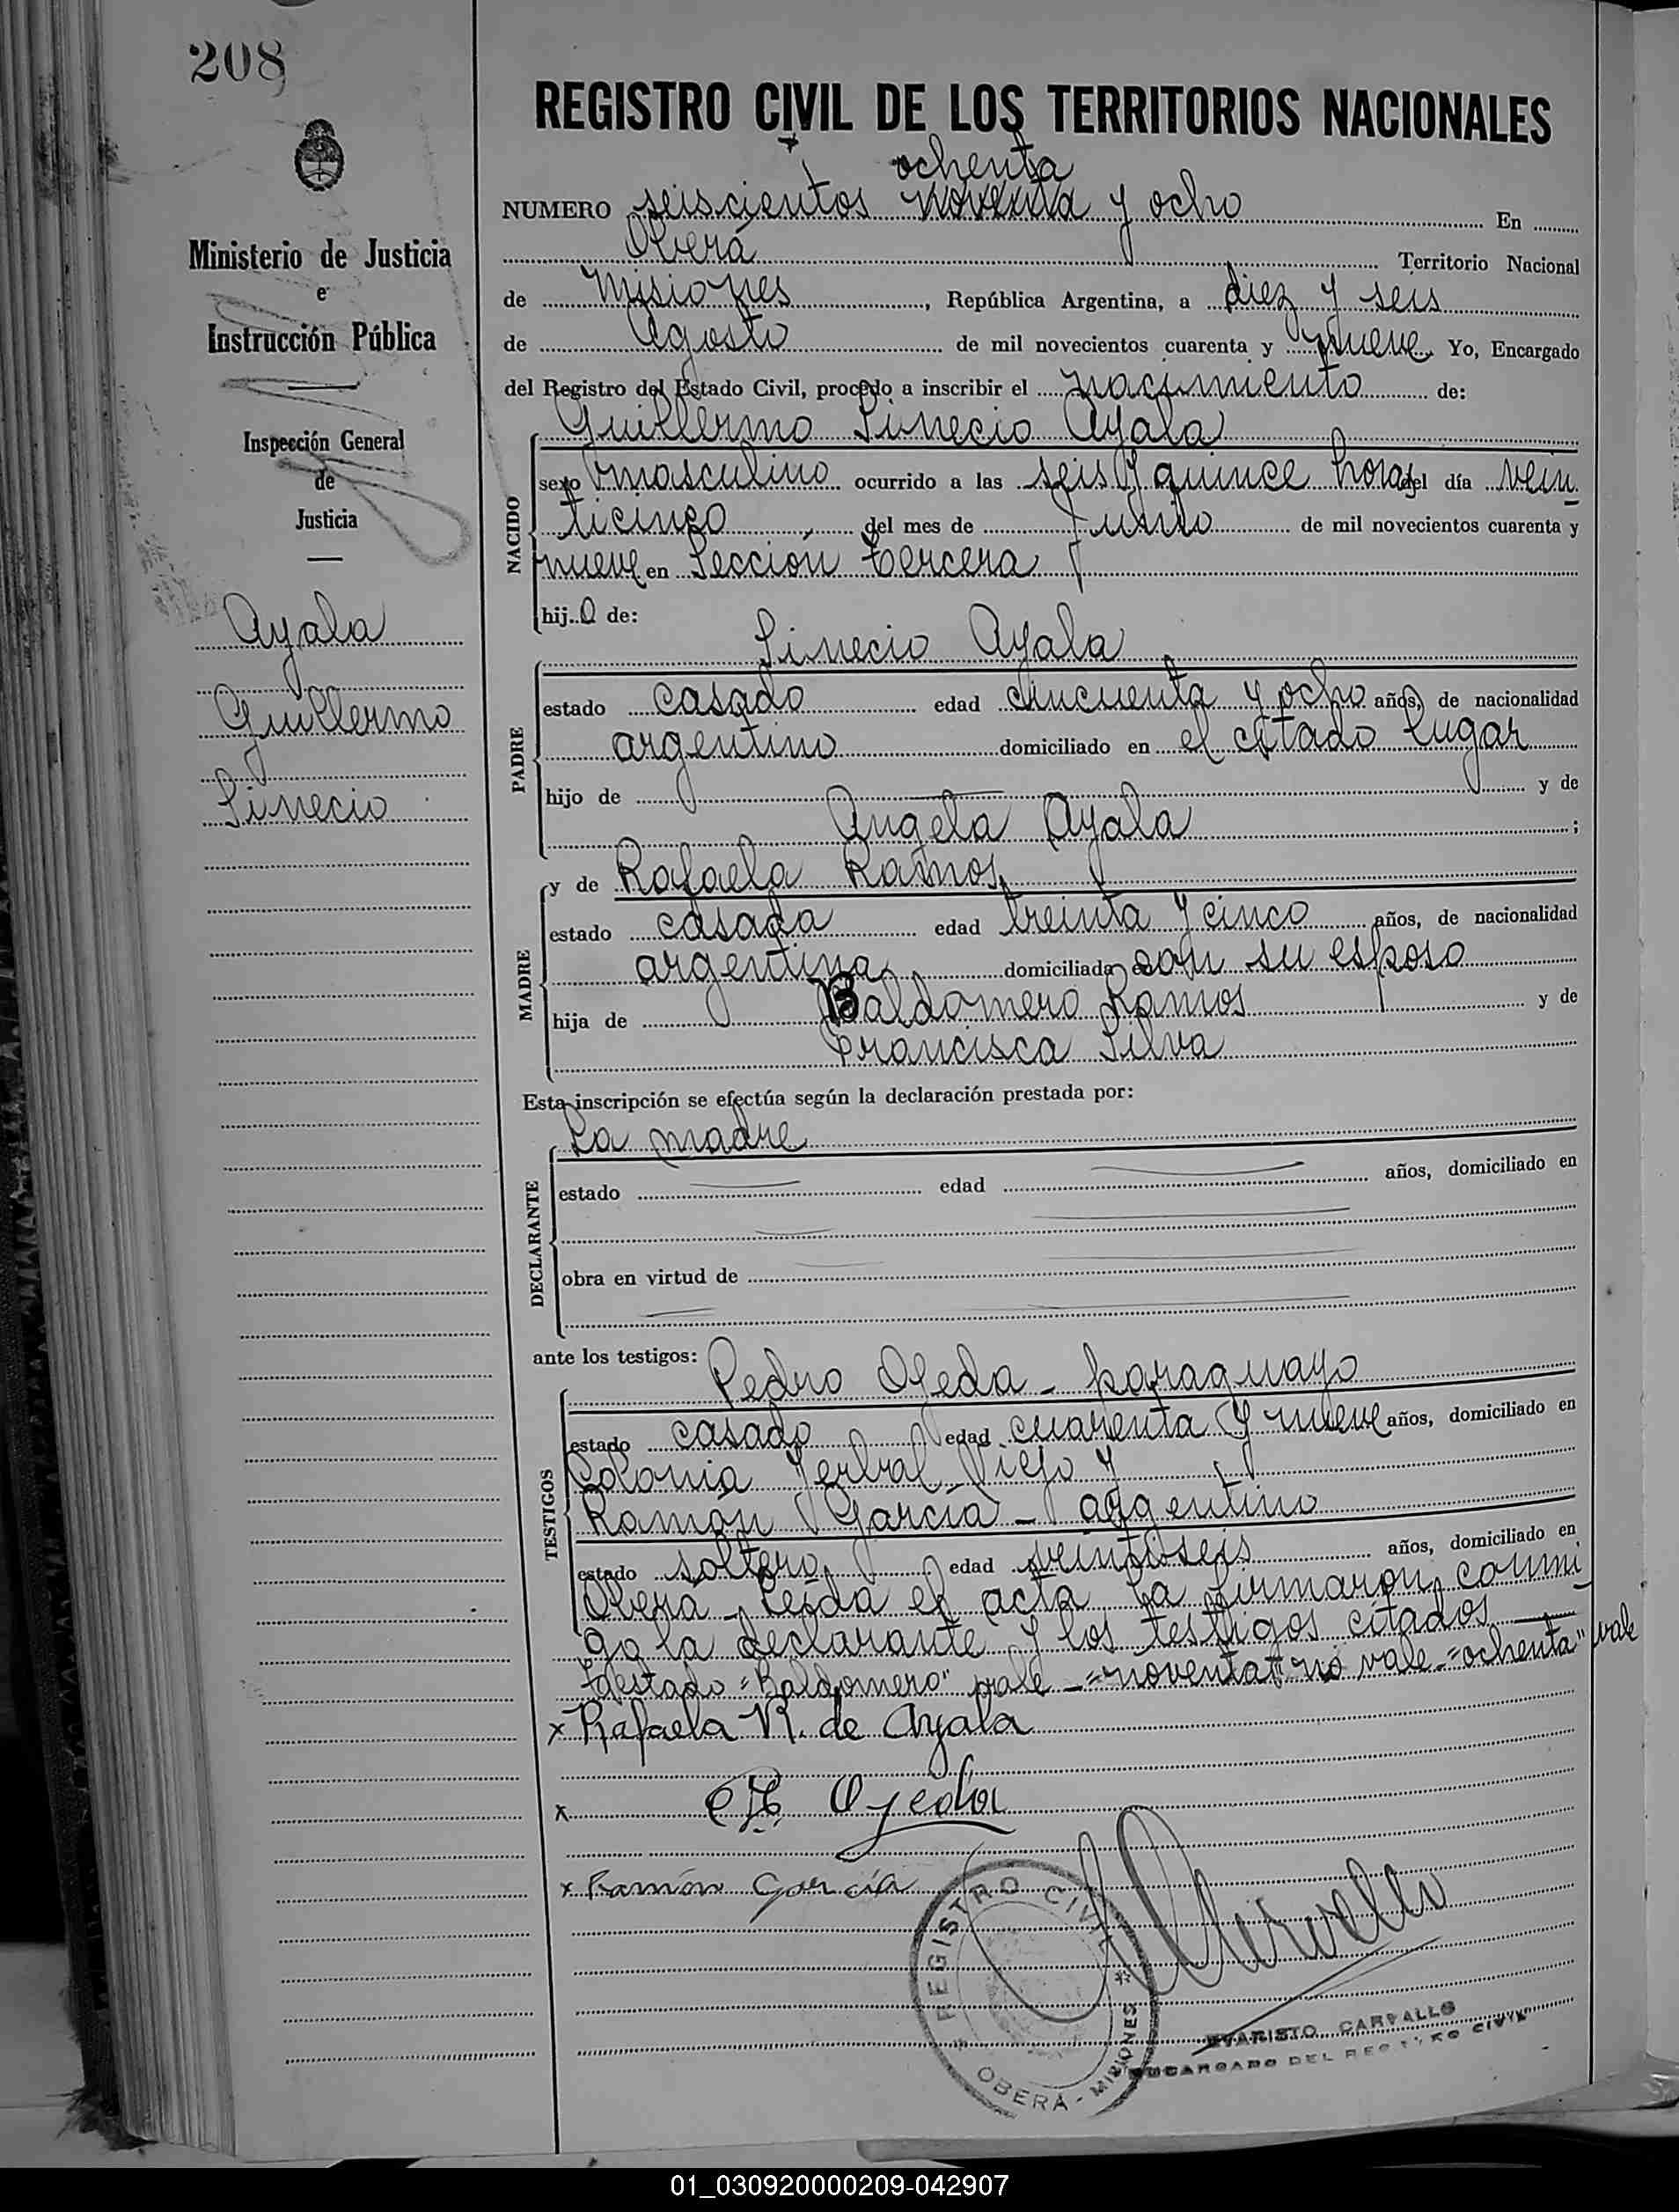 208
REGISTRO CIVIL DE LOS TERRITORIOS NACIONALES
ochenta
NUMERO seiscientos noventa y ocho En
Oberá Territorio Nacional
de Misiones, República Argentina, a diez y seis
de Agosto de mil novecientos cuarenta y nueve Yo, Encargado
del Registro del Estado Civil, procedo a inscribir el nacimiento de:
Ministerio de Justicia
e
Instrucción Pública
Inspección General
de
Justicia
Ayala
Guillermo
Sinecio
NACIDO
Guillermo Sinecio Ayala
sexo masculino ocurrido a las seis y quince horas del día vein
ticinco del mes de de mil novecientos cuarenta y
nueve en Sección tercera
hijo de:
PADRE
Sinecio Ayala
estado casado edad cincuenta y ocho años, de nacionalidad
argentino domiciliado en el citado lugar
hijo de y de
Angela Ayala ;
MADRE
y de Rafaela Ramos
estado casada edad treinta y cinco años, de nacionalidad
argentina domiciliada con su esposo
hija de Baldomero Ramos y de
Francisca Silva
Esta inscripción se efectúa según la declaración prestada por:
DECLARANTE
La madre
estado edad años, domiciliado en
obra en virtud de
ante los testigos:
TESTIGOS
Pedro Ojeda - paraguayo
estado casado edad cuarenta y nueve años, domiciliado en
Colonia Yerbal Viejo y
Ramón García - argentino
estado soltero edad veintiseis años, domiciliado en
Oberá - Leída el acta la firmaron conmi
go la declarante y los testigos citados
"Baldomero" vale - "noventa" no vale - "ochenta" vale
x Rafaela R. de Ayala
x Ojeda
x Ramón García
REGISTRO CIVIL
OBERÁ - MISIONES
EVARISTO CARVALLO
ENCARGADO DEL REGISTRO CIVIL
01_030920000209-042907